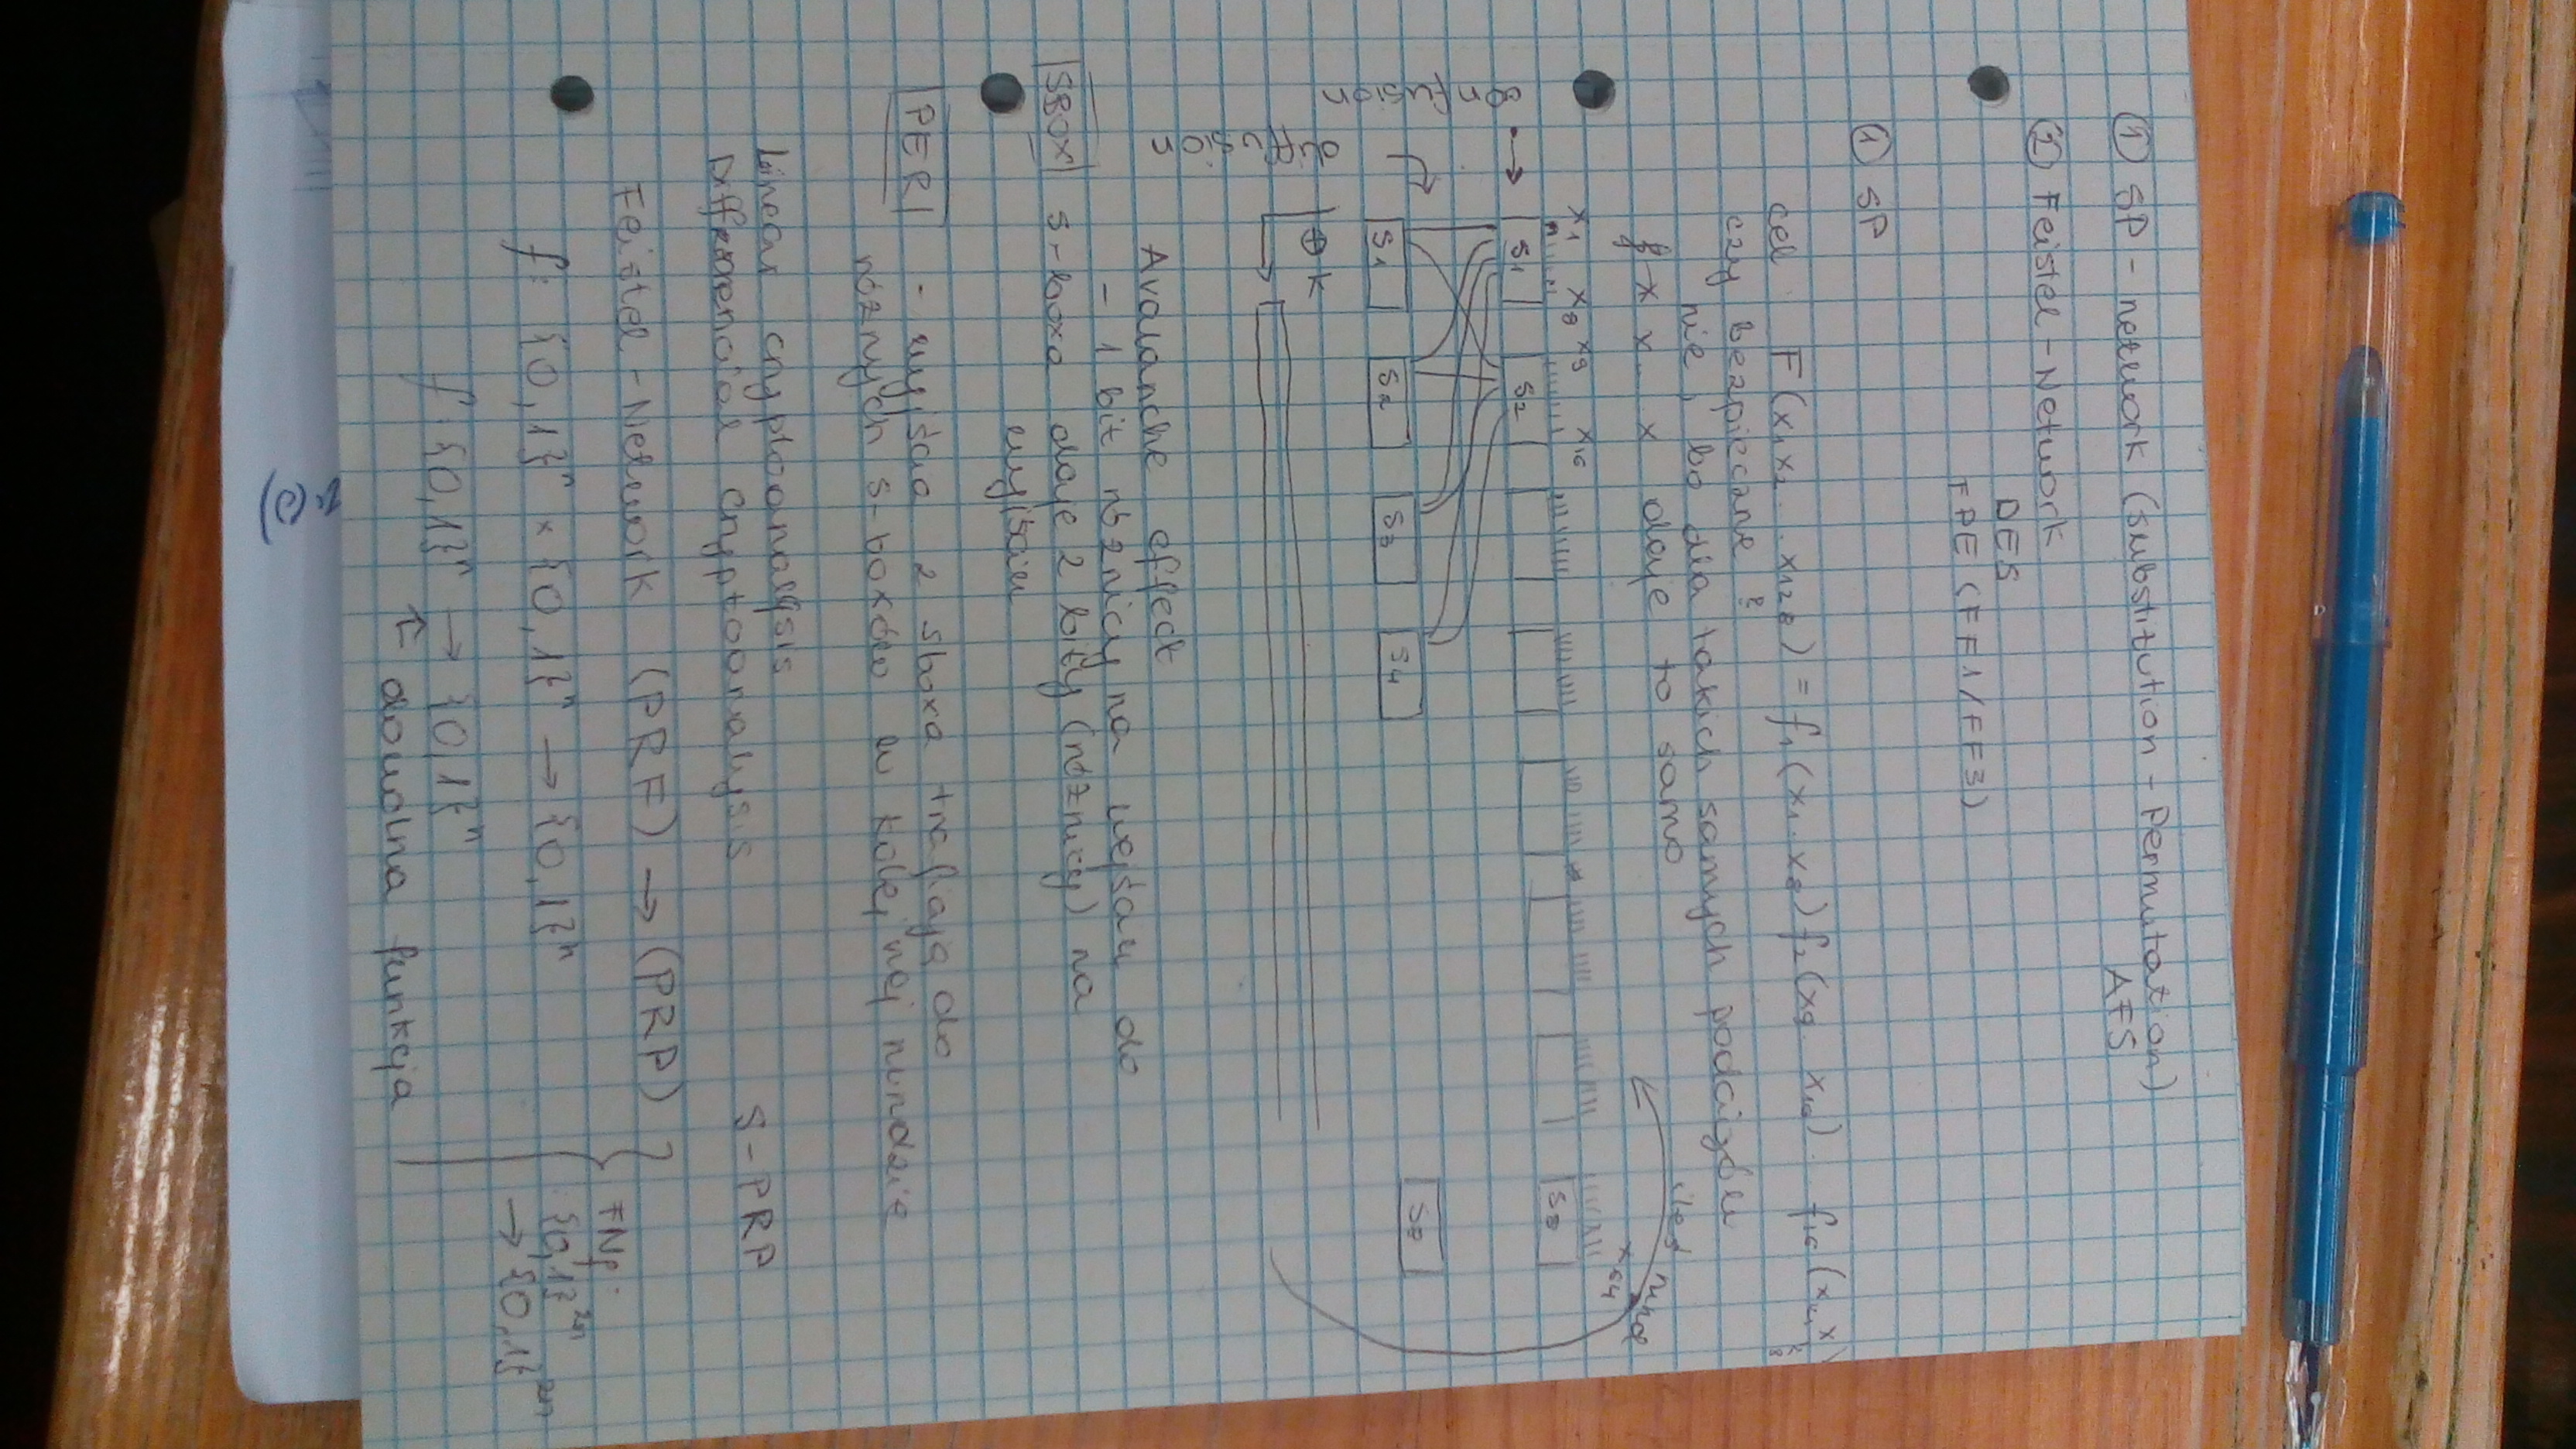 ① SP - network (substitution - permutation)
AES
② Feistel - Network
DES
FPE (FF1/FF3)
① SP
cel F(x₁x₂...x₁₂₈) = f₁(x₁..x₈)f₂(x₉..x₁₆)..f₁₆(
czy bezpieczne?
nie, bo dla takich samych podciągów
x x x daje to samo
ileś rund
x₁ x₈ x₉ x₁₆ x₆₄
S₁ S₂ S₈
S₁ S₂ S₃ S₄ S₈
⊕ K
Avalanche effect
- 1 bit różnicy na wejściu do
SBOX s-boxa daje 2 bity (różnicy) na
wyjściu
PER - wyjścia z sboxa trafiają do
różnych s-boxów w kolejnej rundzie
Linear cryptoanalysis
Differencial cryptoanalysis
S-PRP
Feistel - Network (PRF) → (PRP)
f: {0,1}ⁿ × {0,1}ⁿ → {0,1}ⁿ
f: {0,1}ⁿ → {0,1}ⁿ
↑ dowolna funkcja
FN_f:
{0,1}²ⁿ
→ {0,1}²ⁿ